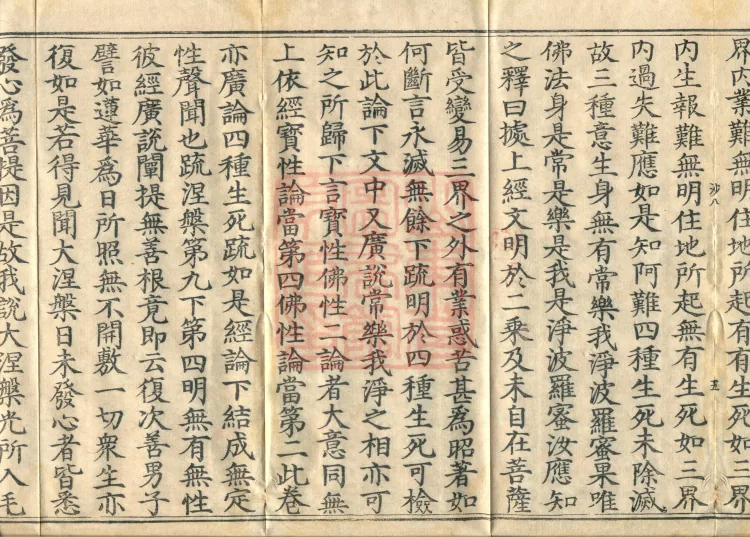 界内業難無明住地所起有有生死如三界
内生報難無明住地所起無有生死如三界
内過失難應如是知阿難四種生死未除滅
故三種意生身無有常樂我淨波羅蜜果唯
佛法身是常是樂是我是淨波羅蜜汝應知
之釋曰據上經文明於二乘及未自在菩薩
皆受變易三界之外有業惑苦甚為昭著如
何斷言永滅無餘下疏明於四種生死可檢
於此論下文中又廣說常樂我淨之相亦可
知之所歸下言寶性佛性二論者大意同無
上依經寶性論當第四佛性論當第二此卷
亦廣論四種生死疏如是經論下結成無定
性聲聞也疏涅槃第九下第四明無有無性
彼經廣說闡提無善根竟即云復次善男子
譬如蓮華為日所照無不開敷一切眾生亦
復如是若得見聞大涅槃日未發心者皆悉
發心為菩提因是故我說大涅槃光所入毛
沙八
五